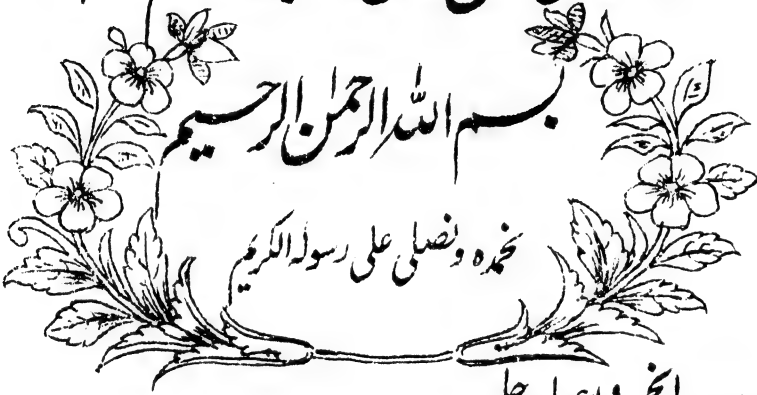 بسم اللہ الرحمٰن الرحیم
نحمدہ ونصلی علی رسولہ الکریم